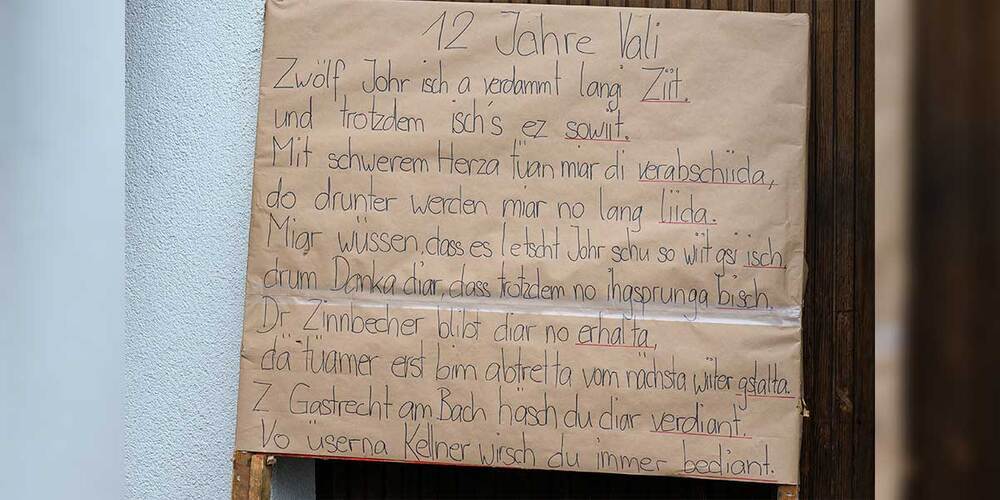 12 Jahre Vali
Zwölf Johr isch a verdammt langi Ziit.
und trotzdem isch's ez sowiit.
Mit schwerem Herza tüan miar di verabschiida,
do drunter werden miar no lang liida.
Miar wüssen, dass es letscht Johr schu so wiit gsi isch,
drum Danka diar, dass trotzdem no ihgsprunga bisch.
Dr Zinnbecher blibt diar no erhalta,
dä tüamer erst bim abtretta vom nächsta wiiter gstalta.
Z Gastrecht am Bach häsch du diar verdiant.
Vo üserna Kellner wirsch du immer bediant.